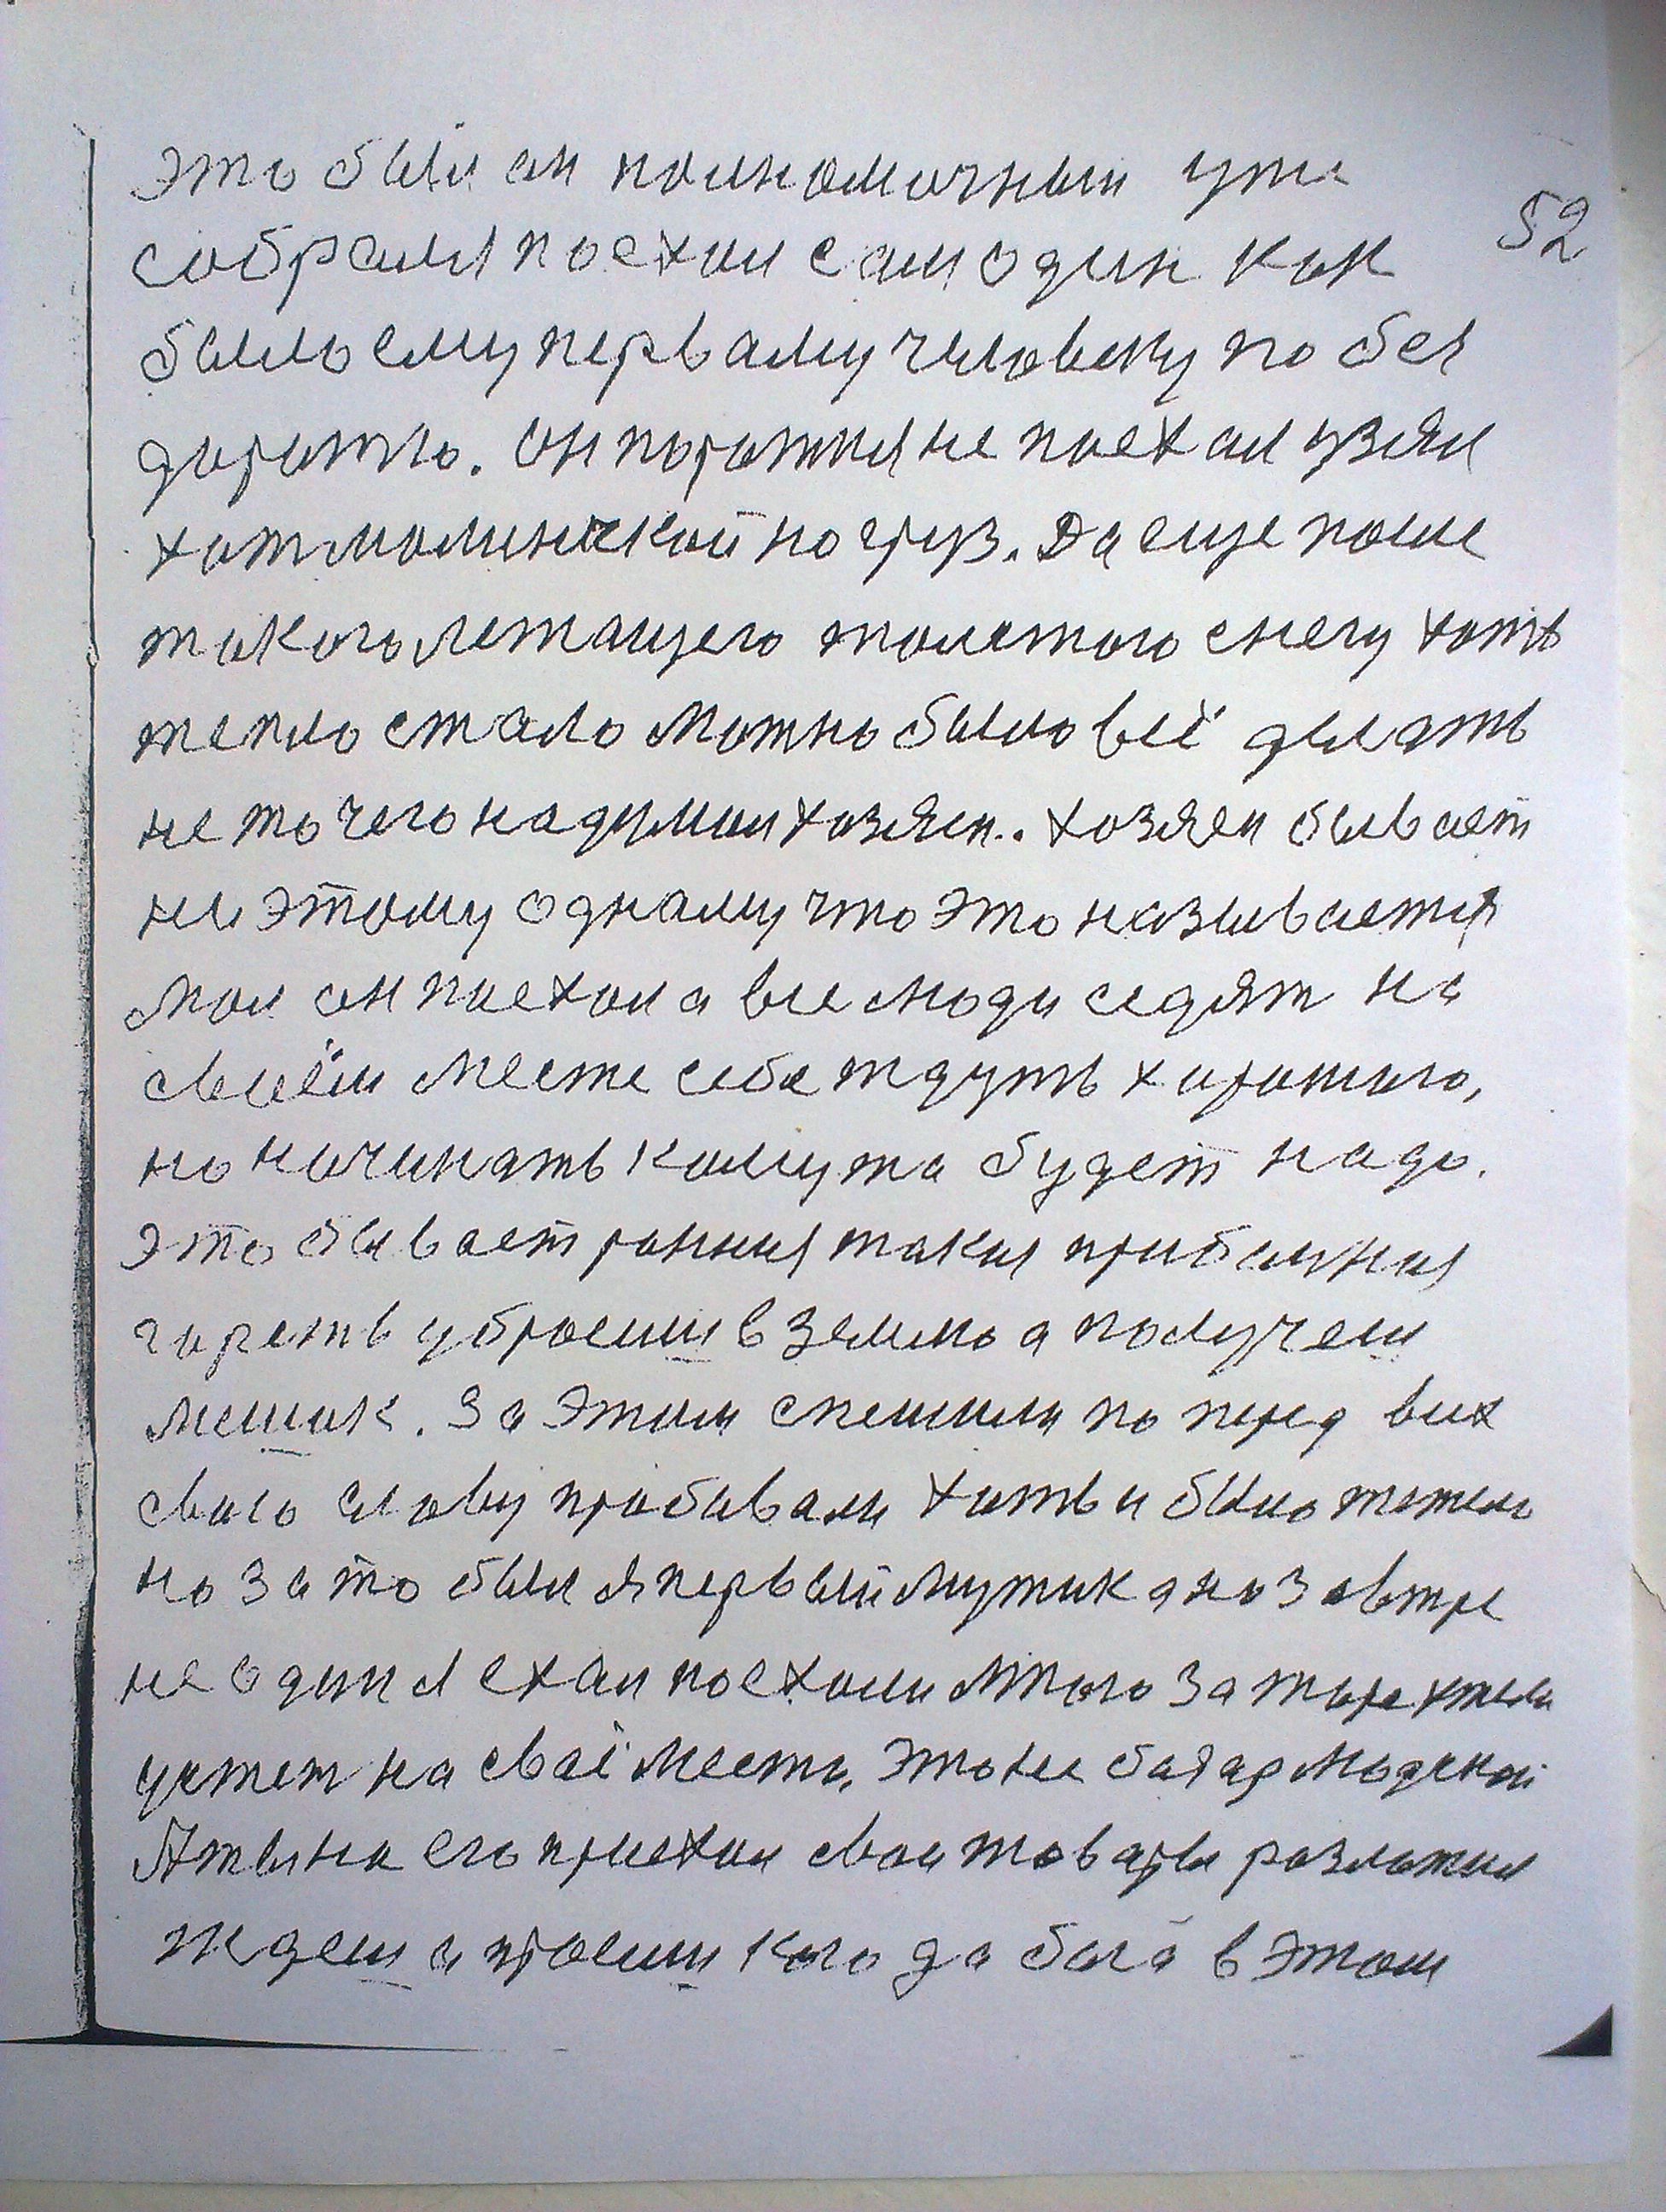 это был он полномочным утр
собрался поехал сам один как
52
было ему первому человеку побел
дорогою. Он порожня не поехал узял
хот молинькой но груз. Да еще после
такого летащего толстого снегу хоть
тепло стало можно было всё делать
не то чего надумал хозяен.. хозяен бывает
не этому одному что это называется
мол он поехал а все люди седят на
своём месте себе ждуть хорошего,
но начинать кому та будет надо.
это бывает ранния такия прибельния
горсть убросиш в землю а получеш
мешок. За этом спешили по перед всих
свого славу пробивали хоть и было тяжело
но за то был я первый мужик а но завтре
не один я ехал поехали много за
на своё место. Это не базар людской
его приехал свои товары разложил
ждеш а просиш кого да бога в этом